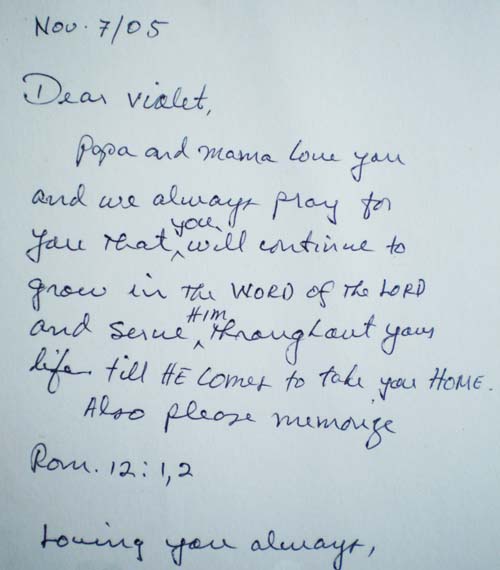 Nov. 7/05
Dear Violet,
Papa and Mama love you
and we always pray for
you that you will continue to
grow in the WORD of the LORD
and serve HIM throughout your
life till HE comes to take you HOME.
Also please memorize
Rom. 12:1,2
Loving you always,